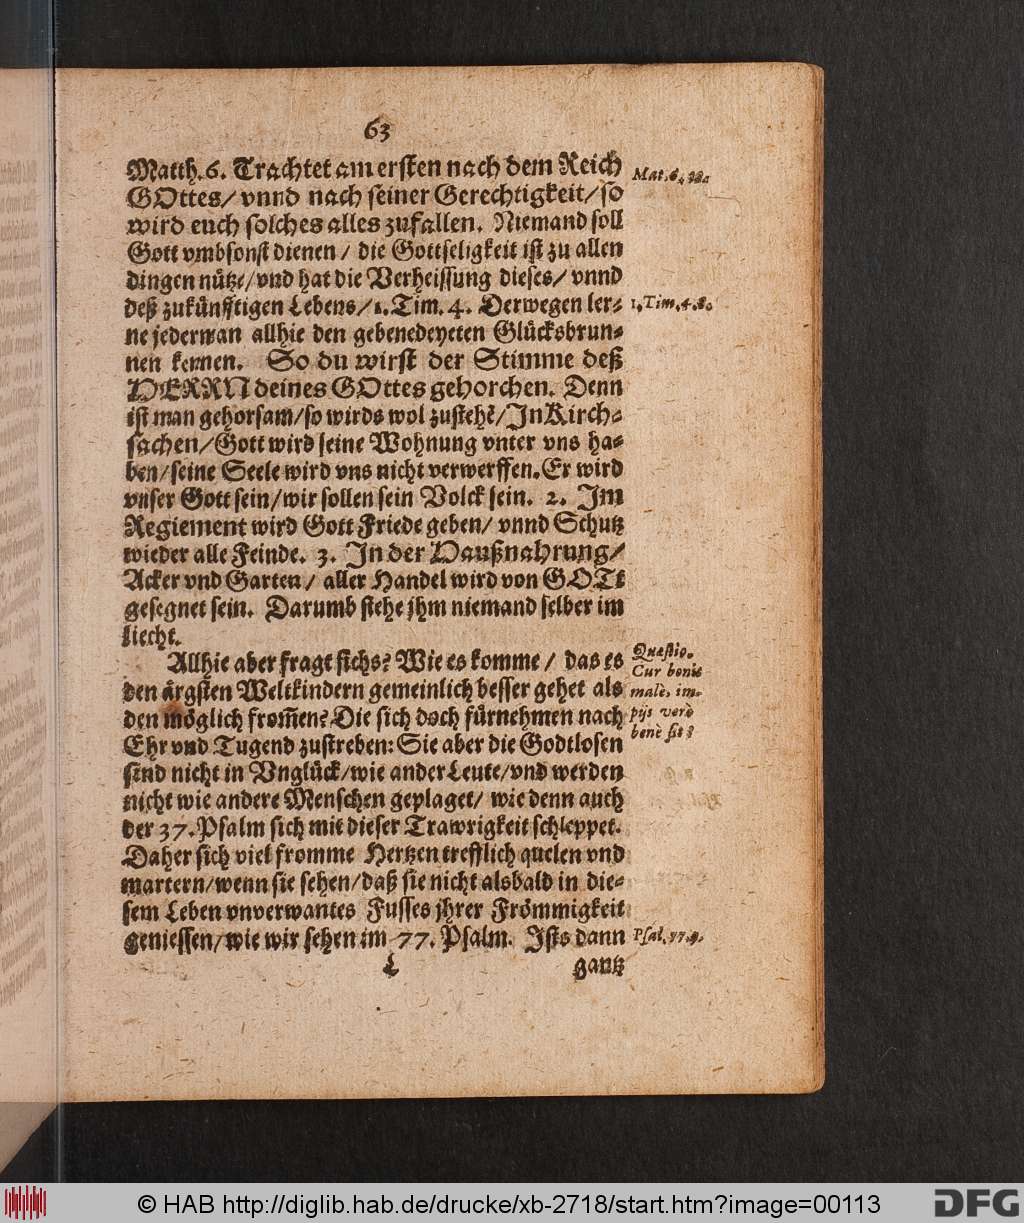 63
Matth. 6. Trachtet am ersten nach dem Reich
GOttes/ vnnd nach seiner Gerechtigkeit/ so
wird euch solches alles zufallen. Niemand soll
Gott vmbsonst dienen / die Gottseligkeit ist zu allen
dingen nütze/ vnd hat die Verheissung dieses/ vnnd
deß zukünfftigen Lebens/ 1. Tim. 4. Derwegen ler-
ne jederman allhie den gebenedeyeten Glücksbrun-
nen kennen. So du wirst der Stimme deß
HERRN deines GOttes gehorchen. Denn
ist man gehorsam/ so wirds wol zustehẽ/ In Kirch-
sachen/ Gott wird seine Wohnung vnter vns ha-
ben/ seine Seele wird vns nicht verwerffen. Er wird
vnser Gott sein/ wir sollen sein Volck sein. 2. Im
Regiement wird Gott Friede geben/ vnnd Schutz
wieder alle Feinde. 3. In der Haußnahrung/
Acker vnd Garten/ aller Handel wird von GOTT
gesegnet sein. Darumb stehe jhm niemand selber im
liecht.
Allhie aber fragt sichs? Wie es komme / das es
den ärgsten Weltkindern gemeinlich besser gehet als
den möglich from̃en? Die sich doch fürnehmen nach
Ehr vnd Tugend zustreben: Sie aber die Godtlosen
sind nicht in Vnglück/ wie ander Leute/ vnd werden
nicht wie andere Menschen geplaget/ wie denn auch
der 37. Psalm sich mit dieser Trawrigkeit schleppet.
Daher sich viel fromme Hertzen trefflich quelen vnd
martern/ wenn sie sehen/ daß sie nicht alsbald in die-
sem Leben vnverwantes Fusses jhrer Frömmigkeit
geniessen/ wie wir sehen im 77. Psalm. Ists dann
L gantz
Mat. 6.
1. Tim. 4. 8.
Quæstio.
Cur bonis
malè, im-
pijs verò
benè sit?
Psal. 77. 9.
© HAB http://diglib.hab.de/drucke/xb-2718/start.htm?image=00113
DFG